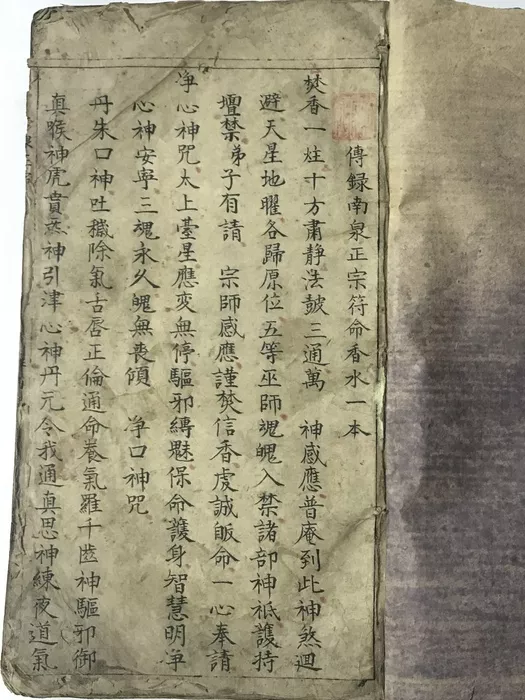 傳錄南泉正宗符命香水一本
焚香一炷十方肅靜法皷三通萬 神感應普庵到此神煞迴
避天星地曜各歸原位五等巫師魂魄入禁諸部神祇護持
壇禁弟子有請 宗師感應謹焚信香虔誠皈命一心奉請
净心神咒太上臺星應变無停驅邪縛魅保命護身智慧明净
心神安寧三魂永久魄無喪傾 净口神咒
丹朱口神吐穢除氣舌唇正倫通命養氣羅千齒神驅邪御
真喉神虎賁氣神引津心神丹元令我通真思神練夜道氣